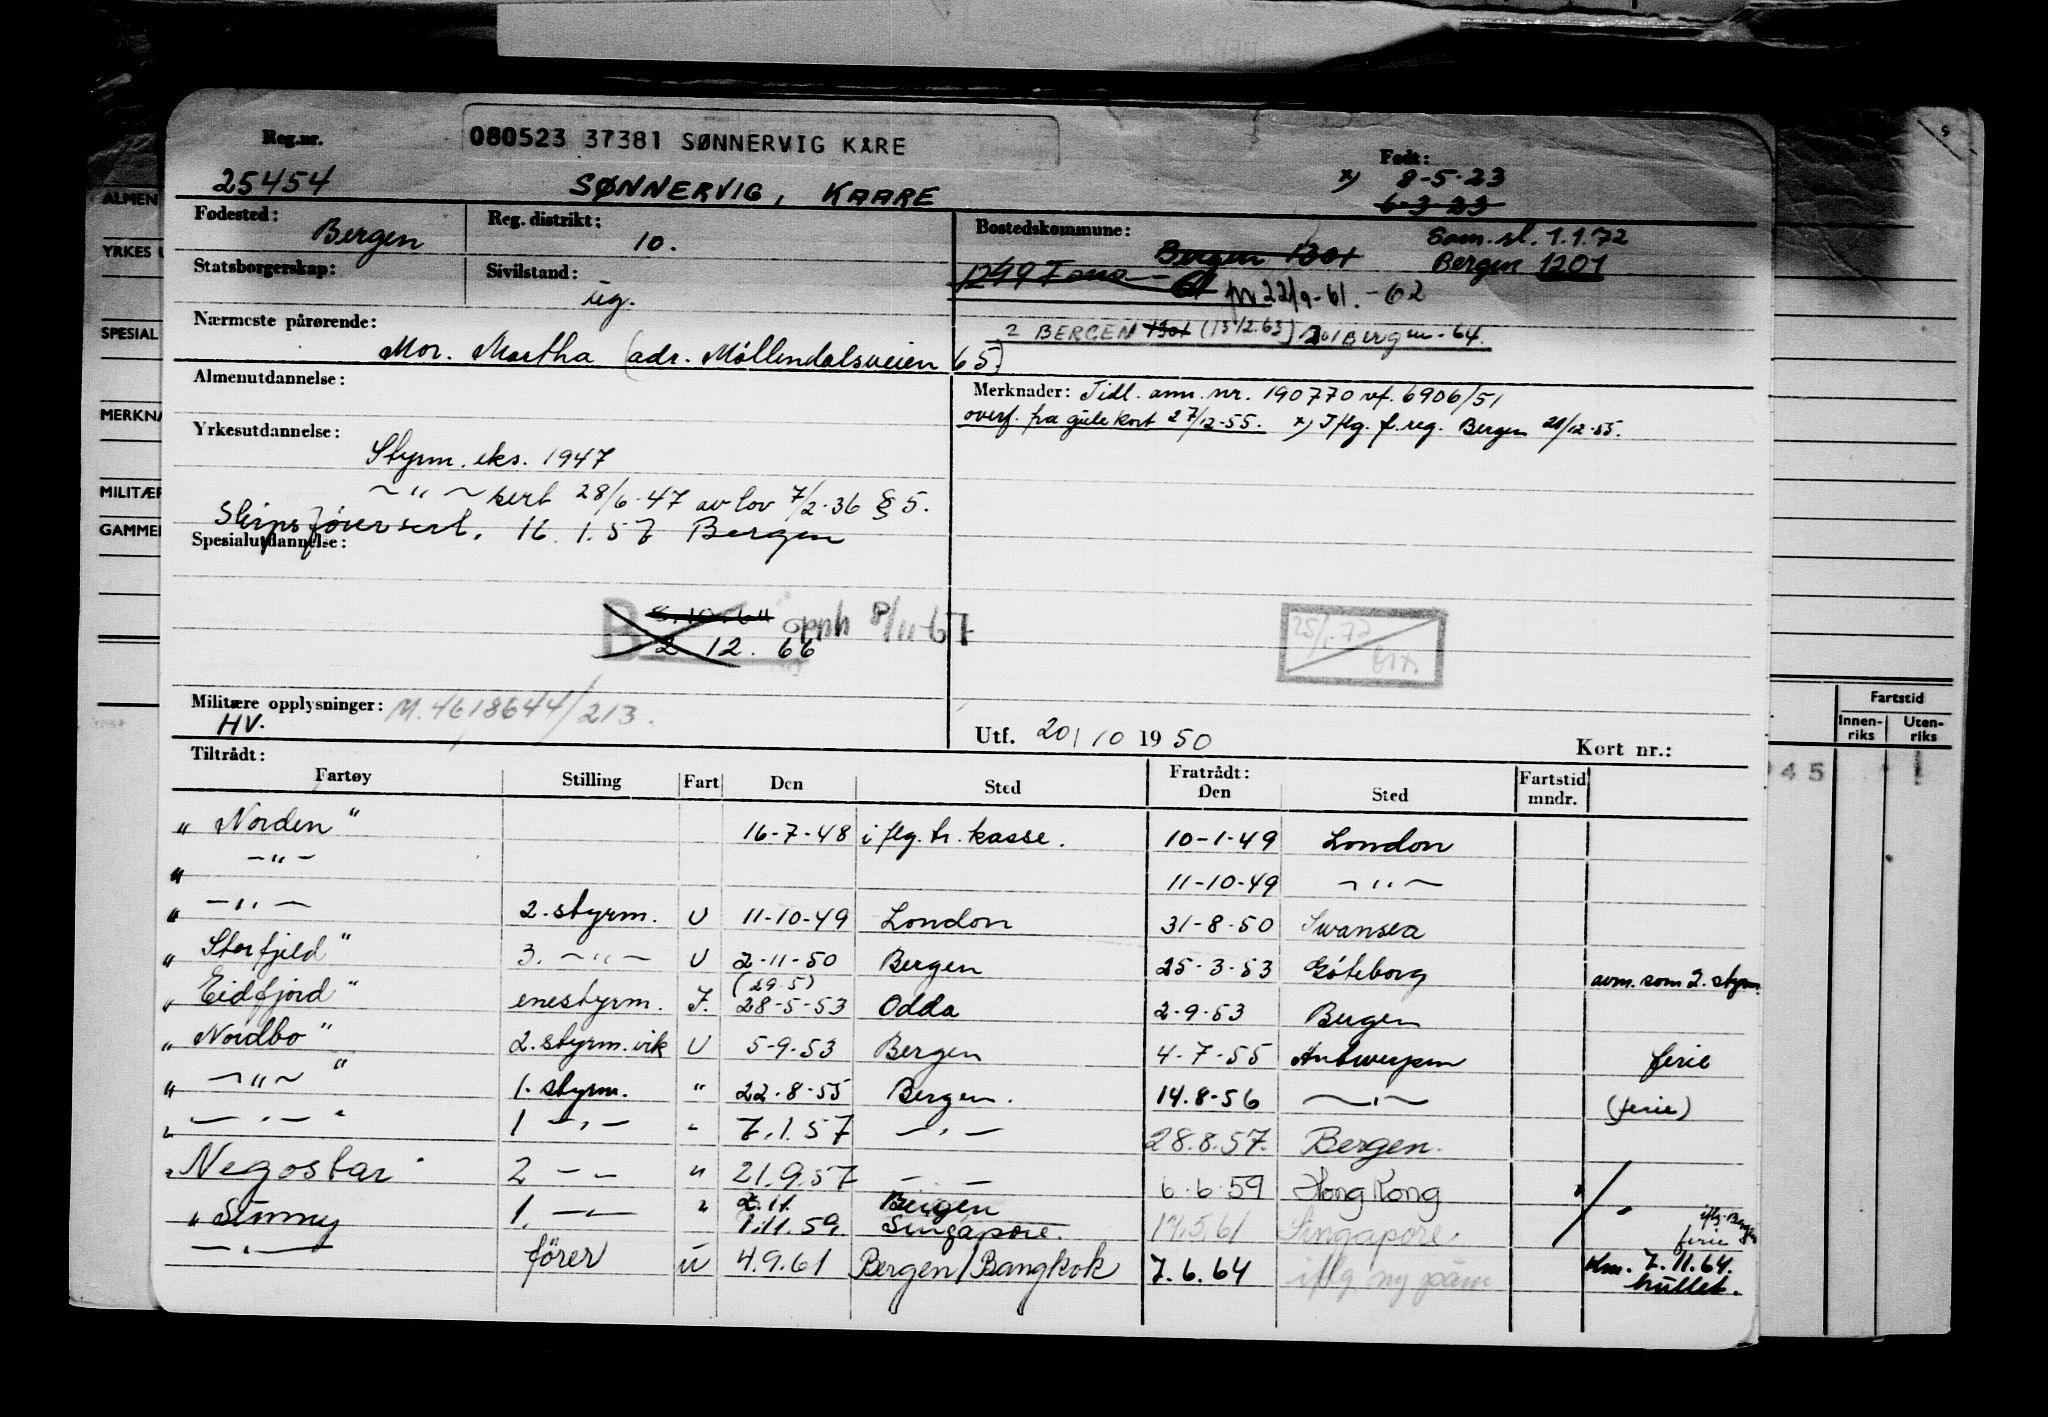 080523 37381 SØNNERVIG KÅRE
Reg.nr.
Født:
25454 SØNNERVIG, KAARE x) 8-5-23
6-3-23
Fødested: Bergen Reg. distrikt: 10. Bostedskommune: Bergen 1301 Sam.sl. 1.1.72
Statsborgerskap: Sivilstand: ug. 1249 Fana - 61 Bergen 1201
pr 22/9-61. -62
Nærmeste pårørende: 2 BERGEN 1301 (13/2.63) Bergen - 64.
Mor. Martha (adr. Møllendalsveien 65)
Almenutdannelse: Merknader: Tidl. ann. nr. 190770 vf. 6906/51
overf. fra gule kort 27/12-55. x) Iflg. f.reg. Bergen 20/12-55.
Yrkesutdannelse:
Styrm. eks. 1947
— " — sert 28/6-47 av lov 7/2-36 § 5.
Skipsførersert. 16.1.57 Bergen
Spesialutdannelse:
B 5.10.64 opph 8/11-67
2 12. 66
25/1.72
Militære opplysninger: M. 4618644/213.
HV.
Utf. 20/10 1950 Kort nr.:
Tiltrådt: Fratrådt:
Fartøy Stilling Fart Den Sted Den Sted Fartstid mndr.
" Norden " 16-7-48 iflg. tr. kasse. 10-1-49 London
" — " — 11-10-49 — " —
" — " — 2. styrm. U 11-10-49 London 31-8-50 Swansea
" Storfjeld " 3. — " — U 2-11-50 Bergen 25-3-53 Göteborg avm. som 2. styrm.
(29.5)
" Eidfjord " enestyrm. I. 28-5-53 Odda 2-9-53 Bergen
" Nordbo " 2. styrm. vik U 5-9-53 Bergen 4-7-55 Antwerpen ferie
" — " — " 1. styrm. " 22.8-55 Bergen. 14.8-56 — " — (ferie)
" — " — " 1 — " — " 7.1.57 — " — 28.8.57. Bergen.
" Negostar " 2 — — " 21.9.57 — — 6.6.59 Hong Kong
2.11. Bergen
" Simmy 1. — " — " 1.11.59. Singapore. 17.5.61 Singapore. iflg. Bergen
ferie
— " — fører u 4.9.61 Bergen/Bangkok 7.6.64 iflg ny påm 7.11.64.
hullet.
ALMEN
YRKES U
SPESIAL
MERKNA
MILITÆR
GAMMEL
Fartstid
Innen-riks Uten-riks
945